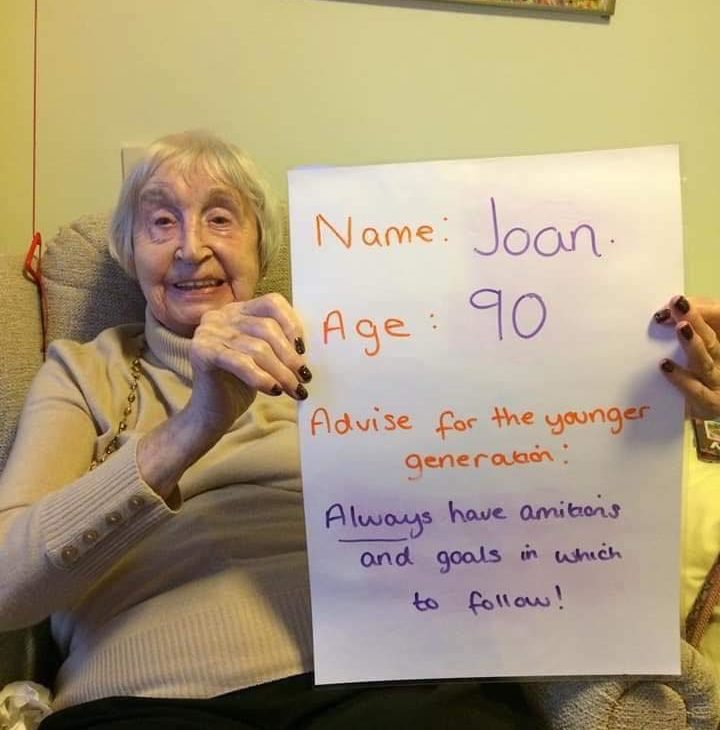 Name: Joan.
Age: 90
Advise for the younger
generation:
Always have amitions
and goals in which
to follow!